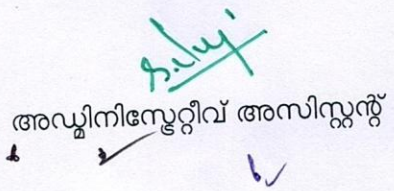 അഡ്മിനിസ്ട്രേറ്റീവ് അസിസ്റ്റന്റ്